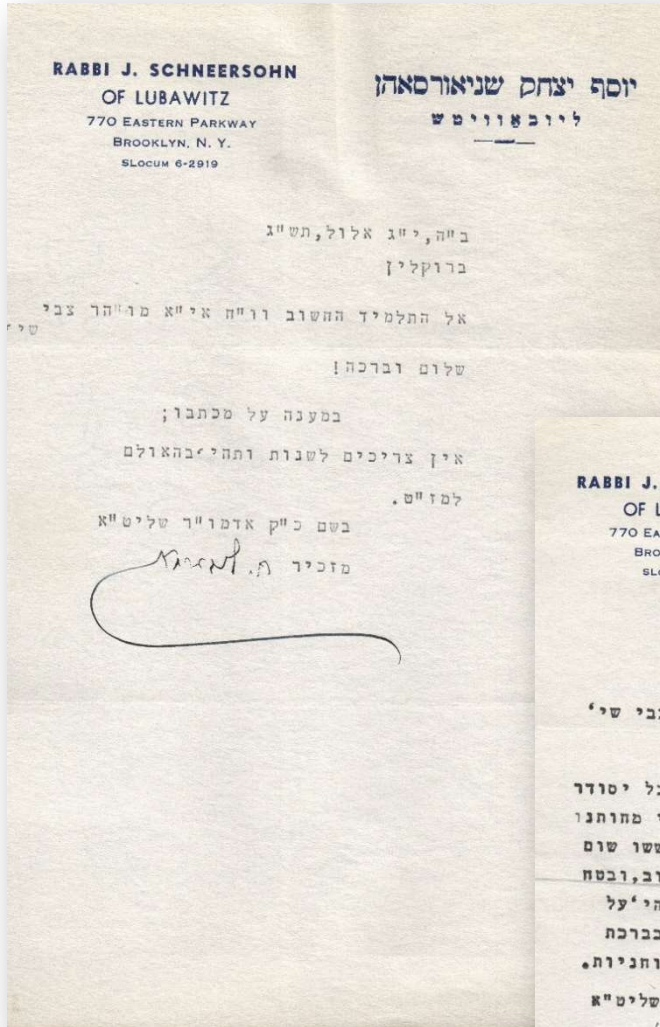 RABBI J. SCHNEERSOHN
OF LUBAWITZ
770 EASTERN PARKWAY
BROOKLYN, N. Y.
SLOCUM 6-2919
יוסף יצחק שניאורסאהן
ליובאוויטש
ב"ה,י"ג אלול,תש"ג
ברוקלין
אל התלמיד החשוב וו"ח אי"א מו"הר צבי שי'
שלום וברכה!
במענה על מכתבו;
אין צריכים לשנות ותהי' בהאולם
למז"ט.
בשם כ"ק אדמו"ר שליט"א
מזכיר
RABBI J.
OF
770
צבי שי'
יסודר
מחותנו
שום
ובטח
הי' על
בברכת
שליט"א